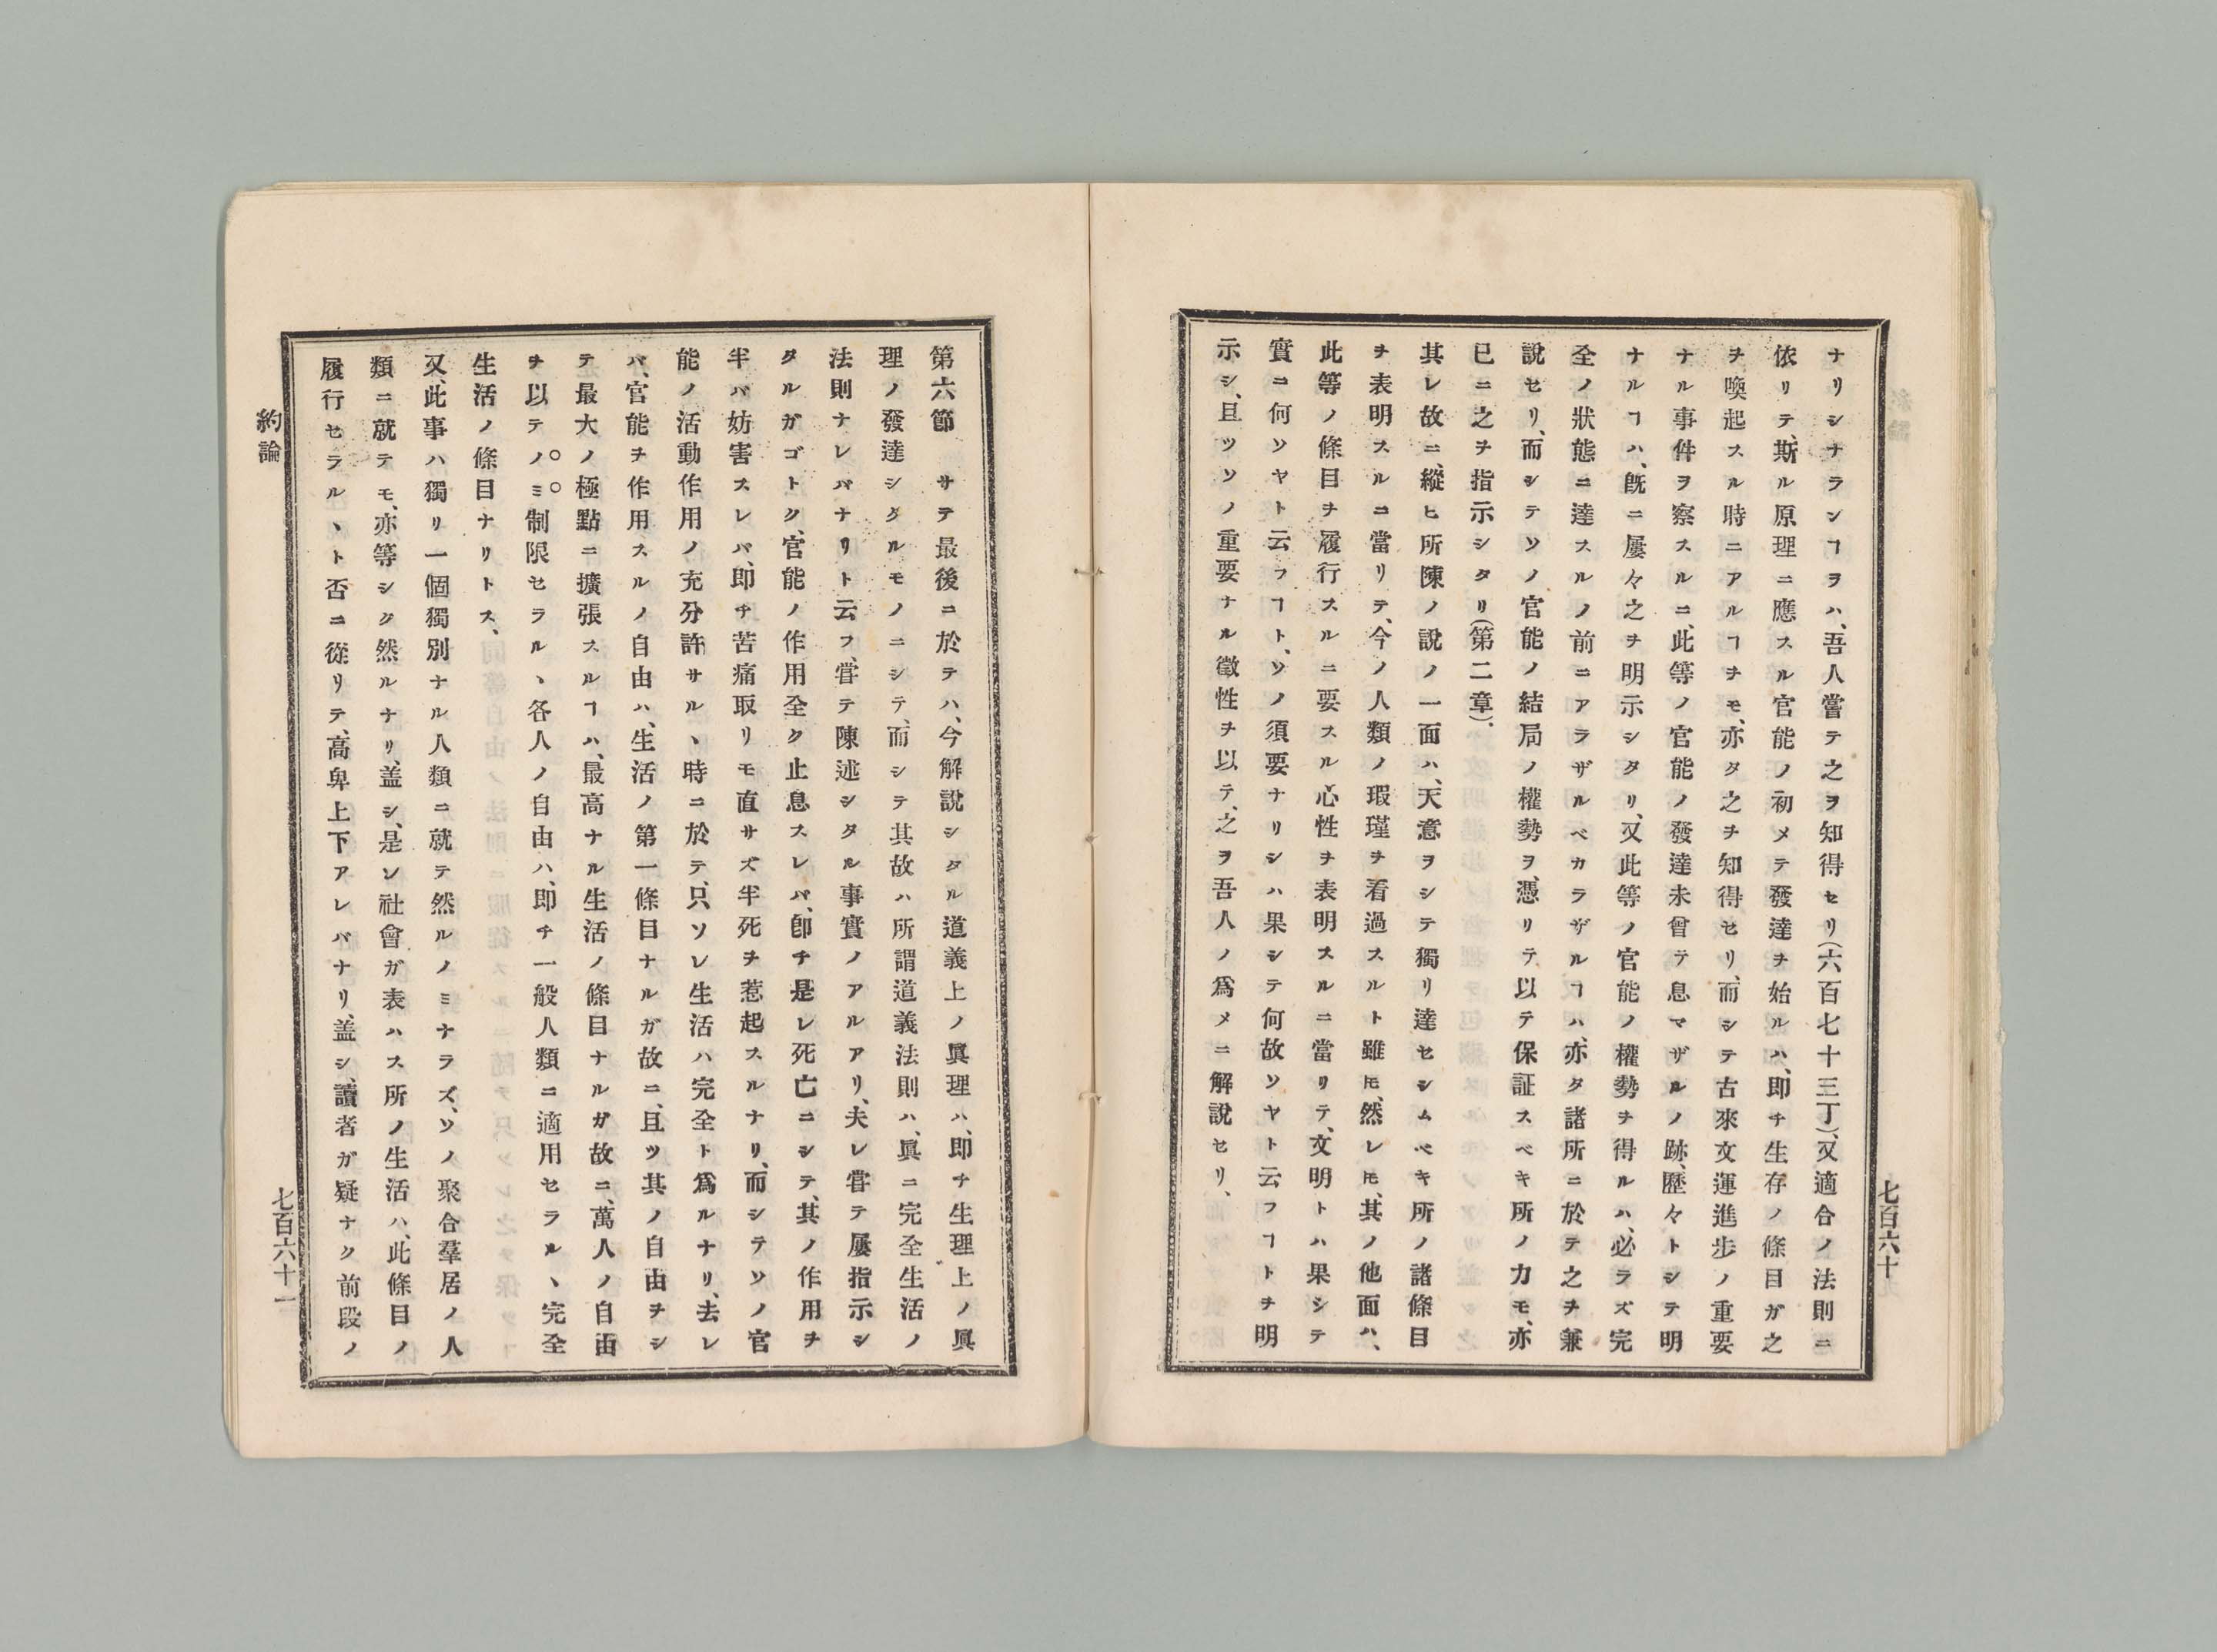 ナリシナランヿヲハ、吾人嘗テ之ヲ知得セリ(六百七十三丁)、又適合ノ法則ニ
依リテ、斯ル原理ニ應スル官能ノ初メテ發達ヲ始ルハ、即チ生存ノ條目ガ之
ヲ喚起スル時ニアルヿヲモ、亦タ之ヲ知得セリ、而シテ古來文運進步ノ重要
ナル事件ヲ察スルニ、此等ノ官能ノ發達未曾テ息マザルノ跡、歷々トシテ明
ナルヿハ、既ニ屢々之ヲ明示シタリ、又此等ノ官能ノ權勢ヲ得ルハ、必ラズ完
全ノ狀態ニ達スルノ前ニアラザルベカラザルヿハ、亦タ諸所ニ於テ之ヲ兼
說セリ、而シテソノ官能ノ結局ノ權勢ヲ、憑リテ以テ保証スベキ所ノ力モ、亦
已ニ之ヲ指示シタリ(第二章)、
其レ故ニ、縱ヒ所陳ノ說ノ一面ハ、天意ヲシテ獨リ達セシムベキ所ノ諸條目
ヲ表明スルニ當リテ、今ノ人類ノ瑕瑾ヲ看過スルト雖ヒ、然レヒ、其ノ他面ハ、
此等ノ條目ヲ履行スルニ要スル心性ヲ表明スルニ當リテ、文明トハ果シテ
實ニ何ソヤト云フヿト、ソノ須要ナリシハ果シテ何故ソヤト云フヿトヲ明
示シ、且ツソノ重要ナル徵性ヲ以テ、之ヲ吾人ノ爲メニ解說セリ、
七百六十
第六節　サテ最後ニ於テハ、今解說シタル道義上ノ眞理ハ、即チ生理上ノ眞
理ノ發達シタルモノニシテ、而シテ其故ハ所謂道義法則ハ、眞ニ完全生活ノ
法則ナレバナリト云フ、甞テ陳述シタル事實ノアルアリ、夫レ甞テ屢指示シ
タルガゴトク、官能ノ作用全ク止息スレバ、即チ是レ死亡ニシテ、其ノ作用ヲ
半バ妨害スレバ、即チ苦痛取リモ直サズ半死ヲ惹起スルナリ、而シテソノ官
能ノ活動作用ノ充分許サルヽ時ニ於テ、只ソレ生活ハ完全ト爲ルナリ、去レ
バ、官能ヲ作用スルノ自由ハ、生活ノ第一條目ナルガ故ニ、且ツ其ノ自由ヲシ
テ最大ノ極點ニ擴張スルヿハ、最高ナル生活ノ條目ナルガ故ニ、萬人ノ自由
ヲ以テノミ制限セラルヽ各人ノ自由ハ、即チ一般人類ニ適用セラルヽ完全
生活ノ條目ナリトス、
又、此事ハ獨リ一個獨別ナル人類ニ就テ然ルノミナラズ、ソノ聚合羣居ノ人
類ニ就テモ、亦等シク然ルナリ、盖シ、是レ社會ガ表ハス所ノ生活ハ、此條目ノ
履行セラルヽト否ニ從リテ、高卑上下アレバナリ、盖シ、讀者ガ疑ナク前段ノ
約論
七百六十一